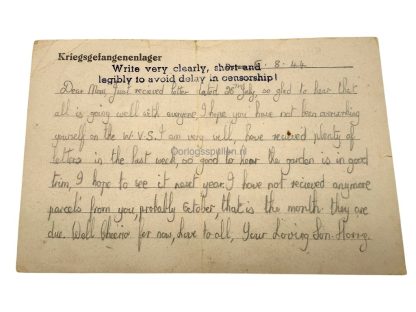 Kriegsgefangenenlager
Write very clearly, short and
legibly to avoid delay in censorship!
8.44
Dear Mum, Just recieved letter dated 26th July, so glad to hear that
all is going well with everyone, I hope you have not been overworking
yourself on the W.V.S. I am very well, have recieved plenty of
letters in the last week, so good to hear the garden is in good
Oorlogsspullen.nl
trim, I hope to see it next year. I have not recieved anymore
parcels from you, probably October, that is the month they are
due. Well Cheerio for now, Love to all, Your Loving Son